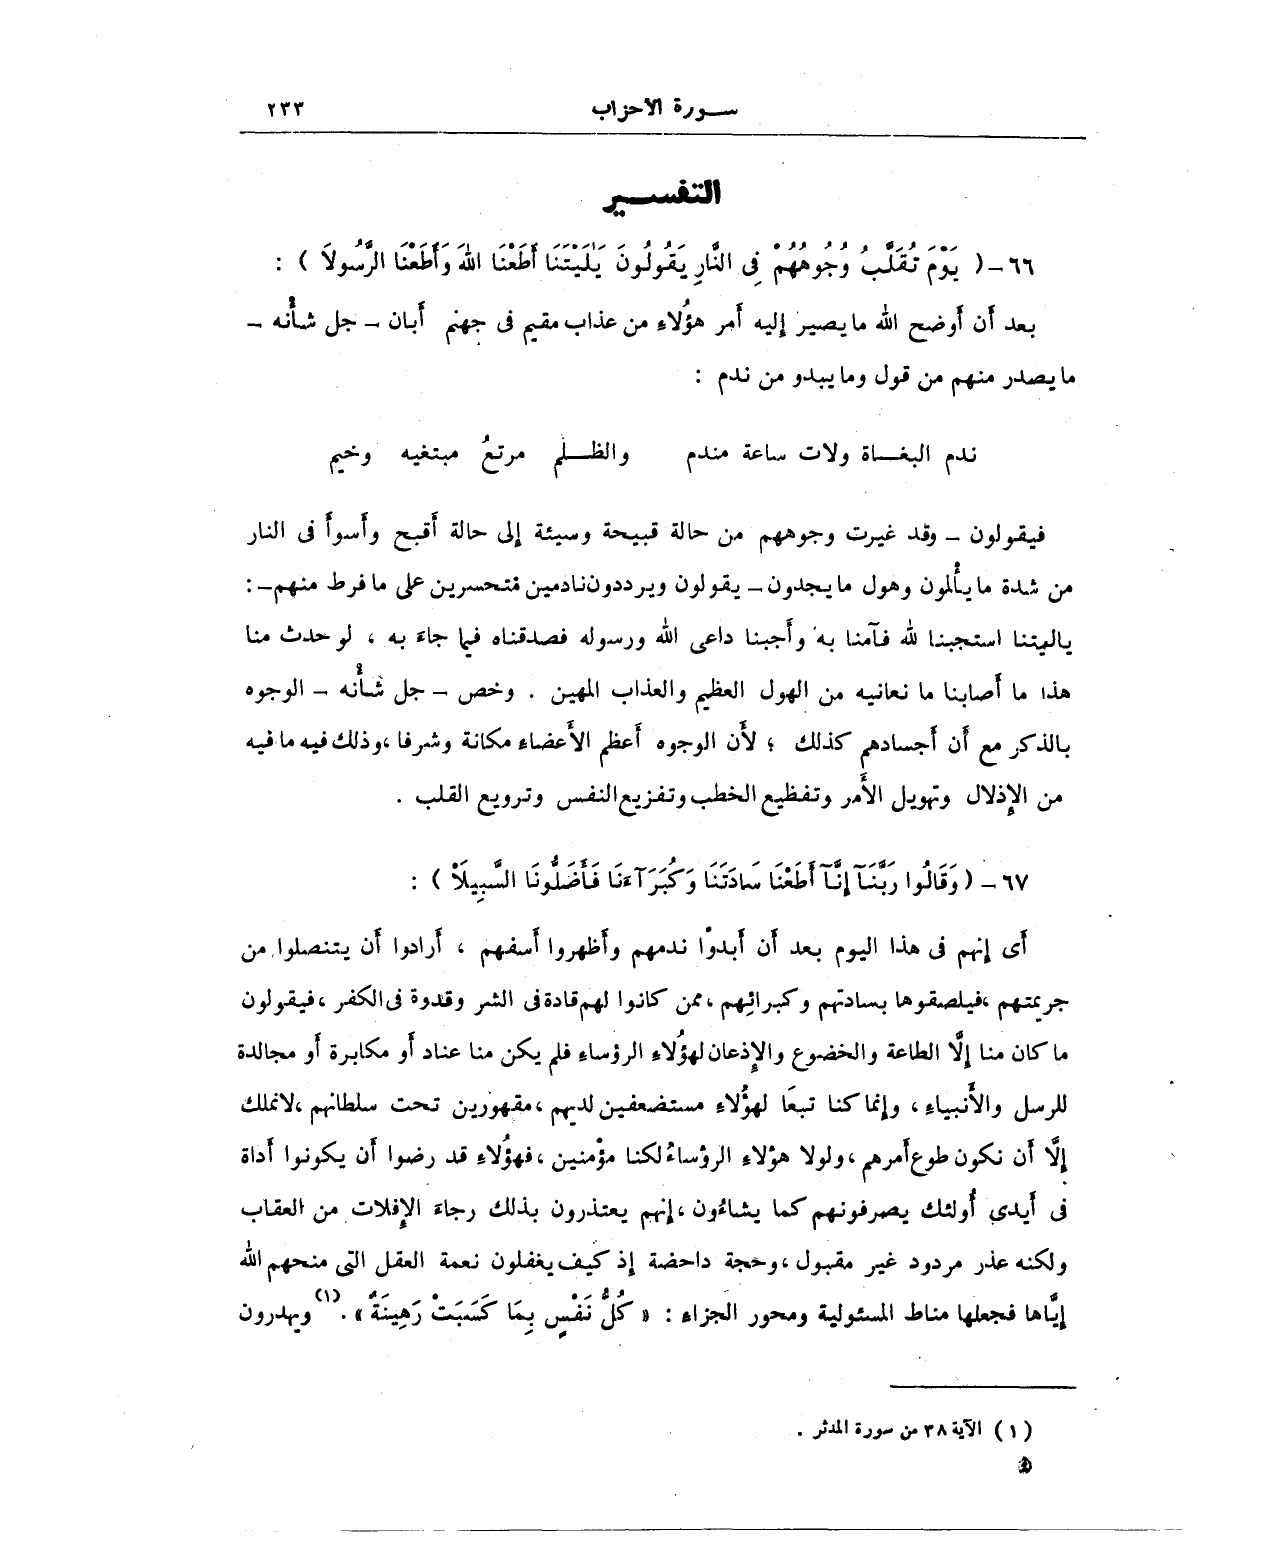 سورة الأحزاب ٢٣٣
التفسير
٦٦ - ( يَوْمَ تُقَلَّبُ وُجُوهُهُمْ فِى النَّارِ يَقُولُونَ يَٰلَيْتَنَا أَطَعْنَا اللهَ وَأَطَعْنَا الرَّسُولَا ) :
بعد أن أوضح الله ما يصير إليه أمر هؤُلاء من عذاب مقيم فى جهنم أبان - جل شأْنه -
ما يصدر منهم من قول وما يبدو من ندم :
ندم البغاة ولات ساعة مندم والظلم مرتعُ مبتغيه وخيم
فيقولون - وقد غيرت وجوههم من حالة قبيحة وسيئة إلى حالة أقبح وأسوأ فى النار
من شدة ما يأْلمون وهول ما يجدون - يقولون ويرددون نادمين مُتحسرين على ما فرط منهم - :
ياليتنا استجبنا لله فآمنا به وأجبنا داعى الله ورسوله فصدقناه فيما جاء به ، لو حدث منا
هذا ما أصابنا ما نعانيه من الهول العظيم والعذاب المهين . وخص - جل شأْنه - الوجوه
بالذكر مع أن أجسادهم كذلك ؛ لأن الوجوه أعظم الأعضاء مكانة وشرفا ، وذلك فيه ما فيه
من الإذلال وتهويل الأمر وتفظيع الخطب وتفزيع النفس وترويع القلب .
٦٧ - ( وَقَالُوا رَبَّنَآ إِنَّآ أَطَعْنَا سَادَتَنَا وَكُبَرَآءَنَا فَأَضَلُّونَا السَّبِيلَاْ ) :
أى إنهم فى هذا اليوم بعد أن أبدوْا ندمهم وأظهروا أسفهم ، أرادوا أن يتنصلوا من
جريمتهم ، فيلصقوها بسادتهم وكبرائهم ، ممن كانوا لهم قادة فى الشر وقدوة فى الكفر ، فيقولون
ما كان منا إلَّا الطاعة والخضوع والإذعان لهؤُلاء الرؤساء فلم يكن منا عناد أو مكابرة أو مجالدة
للرسل والأنبياء ، وإنما كنا تبعًا لهؤُلاء مستضعفين لديهم ، مقهورين تحت سلطانهم ، لا نملك
إلَّا أن نكون طوع أمرهم ، ولولا هؤلاء الرؤساءُ لكنا مؤْمنين ، فهؤُلاء قد رضوا أن يكونوا أداة
فى أيدى أُولئك يصرفونهم كما يشاءُون ، إنهم يعتذرون بذلك رجاء الإفلات من العقاب
ولكنه عذر مردود غير مقبول ، وحجة داحضة إذ كيف يغفلون نعمة العقل التى منحهم الله
إيَّاها فجعلها مناط المسئولية ومحور الجزاء : « كُلُّ نَفْسٍ بِمَا كَسَبَتْ رَهِينَةٌ » . (١) ويهدرون
(١) الآية ٣٨ من سورة المدثر .